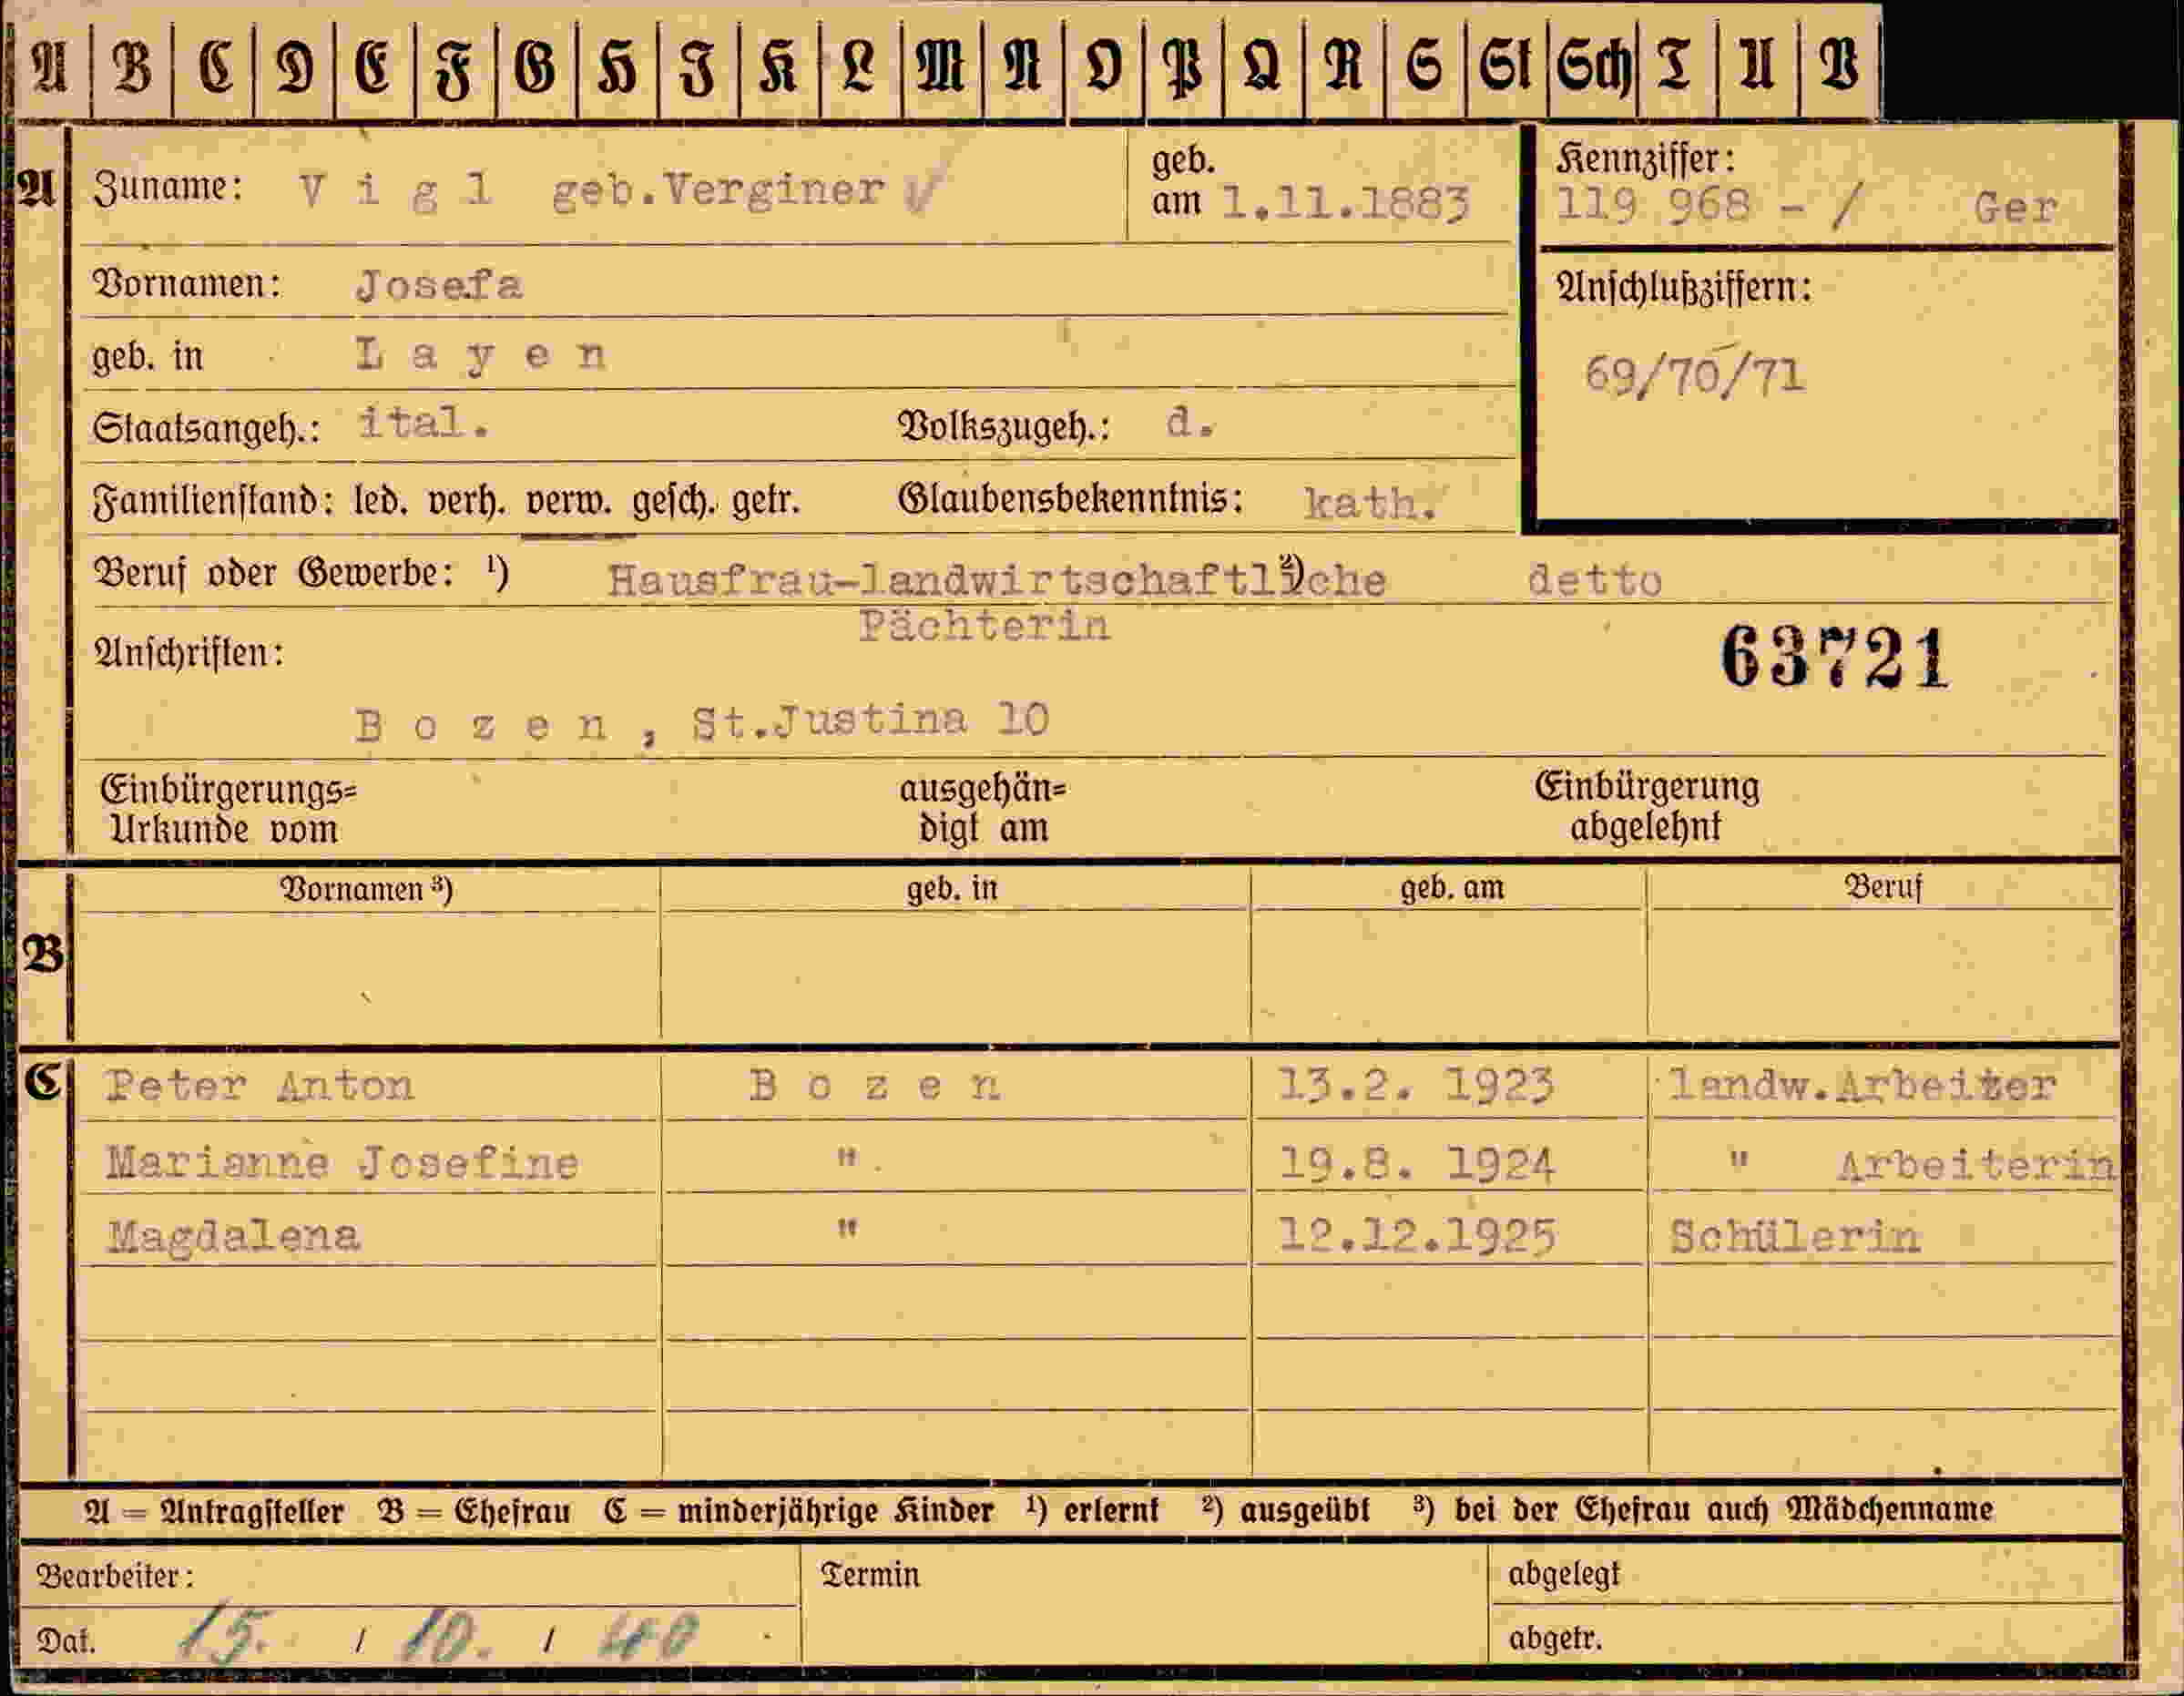 A B C D E F G H I K L M N O P Q R S St Sch T U V
A Zuname: V i g l geb.Verginer geb. am 1.11.1883
Kennziffer: 119 968 - / Ger
Vornamen: Josefa
Anschlußziffern:
geb. in L a y e n
69/70/71
Staatsangeh.: ital. Volkszugeh.: d.
Familienstand: led. verh. verw. gesch. getr. Glaubensbekenntnis: kath.
Beruf oder Gewerbe: ¹) Hausfrau-landwirtschaftliche ²) detto
Pächterin
Anschriften: 63721
B o z e n , St.Justina 10
Einbürgerungs= ausgehän= Einbürgerung
Urkunde vom digt am abgelehnt
Vornamen ³) geb. in geb. am Beruf
B
C Peter Anton B o z e n 13.2. 1923 landw.Arbeiter
Marianne Josefine " 19.8. 1924 " Arbeiterin
Magdalena " 12.12.1925 Schülerin
A = Antragsteller B = Ehefrau C = minderjährige Kinder ¹) erlernt ²) ausgeübt ³) bei der Ehefrau auch Mädchenname
Bearbeiter: Termin abgelegt
Dat. 15. / 10. / 40 abgetr.